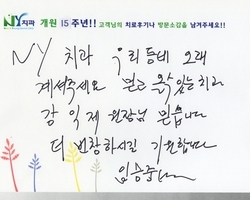 NY치과 개원 15주년!! 고객님의 치료후기나 방문소감을 남겨주세요!!
NY 치과 우리동네 오래
계셔주세요 믿고 올수있는치과
강익제 원장님 믿습니다
더 번창하시길 기원합니다
임승준